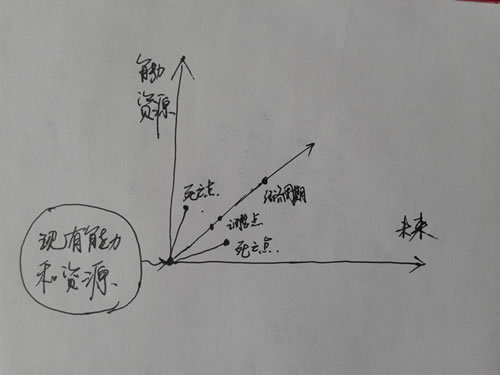 能力
资源
死亡点
经济周期
调整点
死亡点
未来
现有能力
和资源